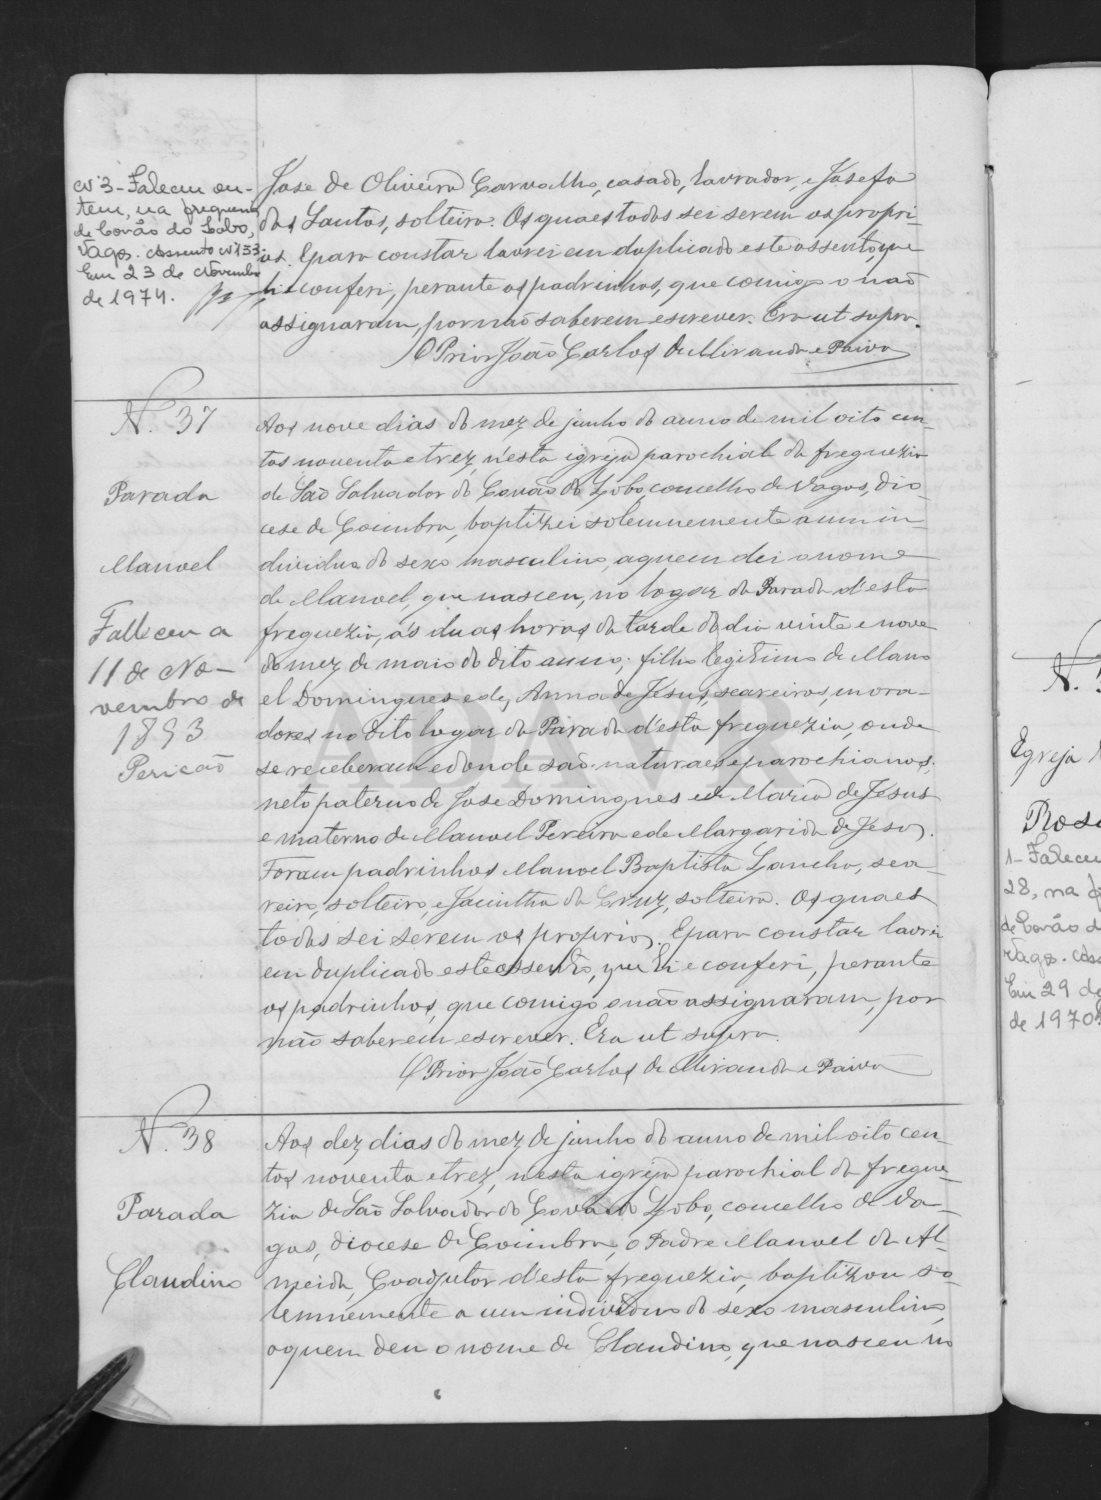 Nº 3 - Faleceu on-
tem, na freguesia
de Covão do Lobo,
Vagos. Assento nº 133.
Em 23 de Novembro
de 1974.
José de Oliveira Carvalho, casado, lavrador, e Josefa
dos Santos, solteira. Os quaes todos sei serem os propri-
os. E para constar lavrei em duplicado este assento, que
li e conferi, perante os padrinhos, que comigo o não
assignaram, por não saberem escrever. Era ut supra.
O Prior João Carlos de Miranda e Paiva
N.º 37
Parada
Manoel
Falleceu a
11 de No-
vembro de
1893
Aos nove dias do mez de junho do anno de mil oito cen-
tos noventa e trez, n'esta igreja parochial da freguezia
de São Salvador do Covão do Lobo, concelho de Vagos, dio-
cese de Coimbra, baptizei solemnemente a um in-
dividuo do sexo masculino, a quem dei o nome
de Manoel, que nasceu, no logar da Parada d'esta
freguezia, ás duas horas da tarde do dia vinte e nove
do mez de maio do dito anno; filho legitimo de Mano
el Domingues e de, Anna de Jesus, seareiros, mora-
dores no dito logar da Parada d'esta freguezia, onde
se receberam e donde são naturaes e parochianos;
neto paterno de José Domingues e de Maria de Jesus
e materno de Manoel Pereira e de Margarida de Jesus.
Foram padrinhos Manoel Baptista Lancha, sea-
reiro, solteiro, e Jacintha da Cruz, solteira. Os quaes
todos sei serem os proprios. E para constar lavrei
em duplicado este assento, que li e conferi, perante
os padrinhos, que comigo o não assignaram, por
não saberem escrever. Era ut supra.
O Prior João Carlos de Miranda e Paiva
N.º 38
Parada
Claudino
Aos dez dias do mez de junho do anno de mil oito cen-
tos noventa e trez, n'esta igreja parochial da fregue-
zia de São Salvador do Covão do Lobo, concelho de Va-
gos, diocese de Coimbra, o Padre Manoel da Al-
meida, Coadjutor d'esta freguezia, baptizou so-
lemnemente a um individuo do sexo masculino,
a quem deu o nome de Claudino, que nasceu no
ADAVR
N.
Egreja
Rosa
1 - Faleceu
28, na
de Covão d
Vagos.
Em 29 de
de 1970